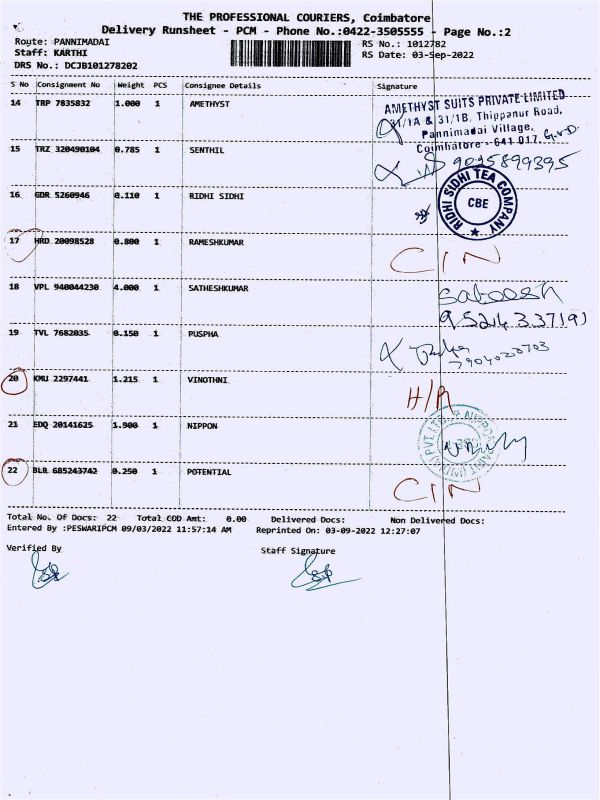 THE PROFESSIONAL COURIERS, Coimbatore
Delivery Runsheet - PCM - Phone No.:0422-3505555 - Page No.:2
Route: PANNIMADAI RS No.: 1012782
Staff: KARTHI RS Date: 03-Sep-2022
DRS No.: DCJB101278202
S No Consignment No Weight PCS Consignee Details Signature
14 TRP 7835832 1.000 1 AMETHYST
AMETHYST SUITS PRIVATE LIMITED
31/1A & 31/1B, Thippanur Road,
Pannimadai Village,
Coimbatore - 641 017.
15 TRZ 320490104 0.785 1 SENTHIL 9025899395
16 GDR 5260946 0.110 1 RIDHI SIDHI
RIDHI SIDHI TEA COMPANY
CBE
17 HRD 20098528 0.800 1 RAMESHKUMAR CIN
18 VPL 940044230 4.000 1 SATHESHKUMAR
19 TVL 7682035 0.150 1 PUSPHA
20 KMU 2297441 1.215 1 VINOTHNI H/R
21 EDQ 20141625 1.900 1 NIPPON
22 BLR 685243742 0.250 1 POTENTIAL CIN
Total No. Of Docs: 22 Total COD Amt: 0.00 Delivered Docs: Non Delivered Docs:
Entered By :PESWARIPCM 09/03/2022 11:57:14 AM Reprinted On: 03-09-2022 12:27:07
Verified By Staff Signature